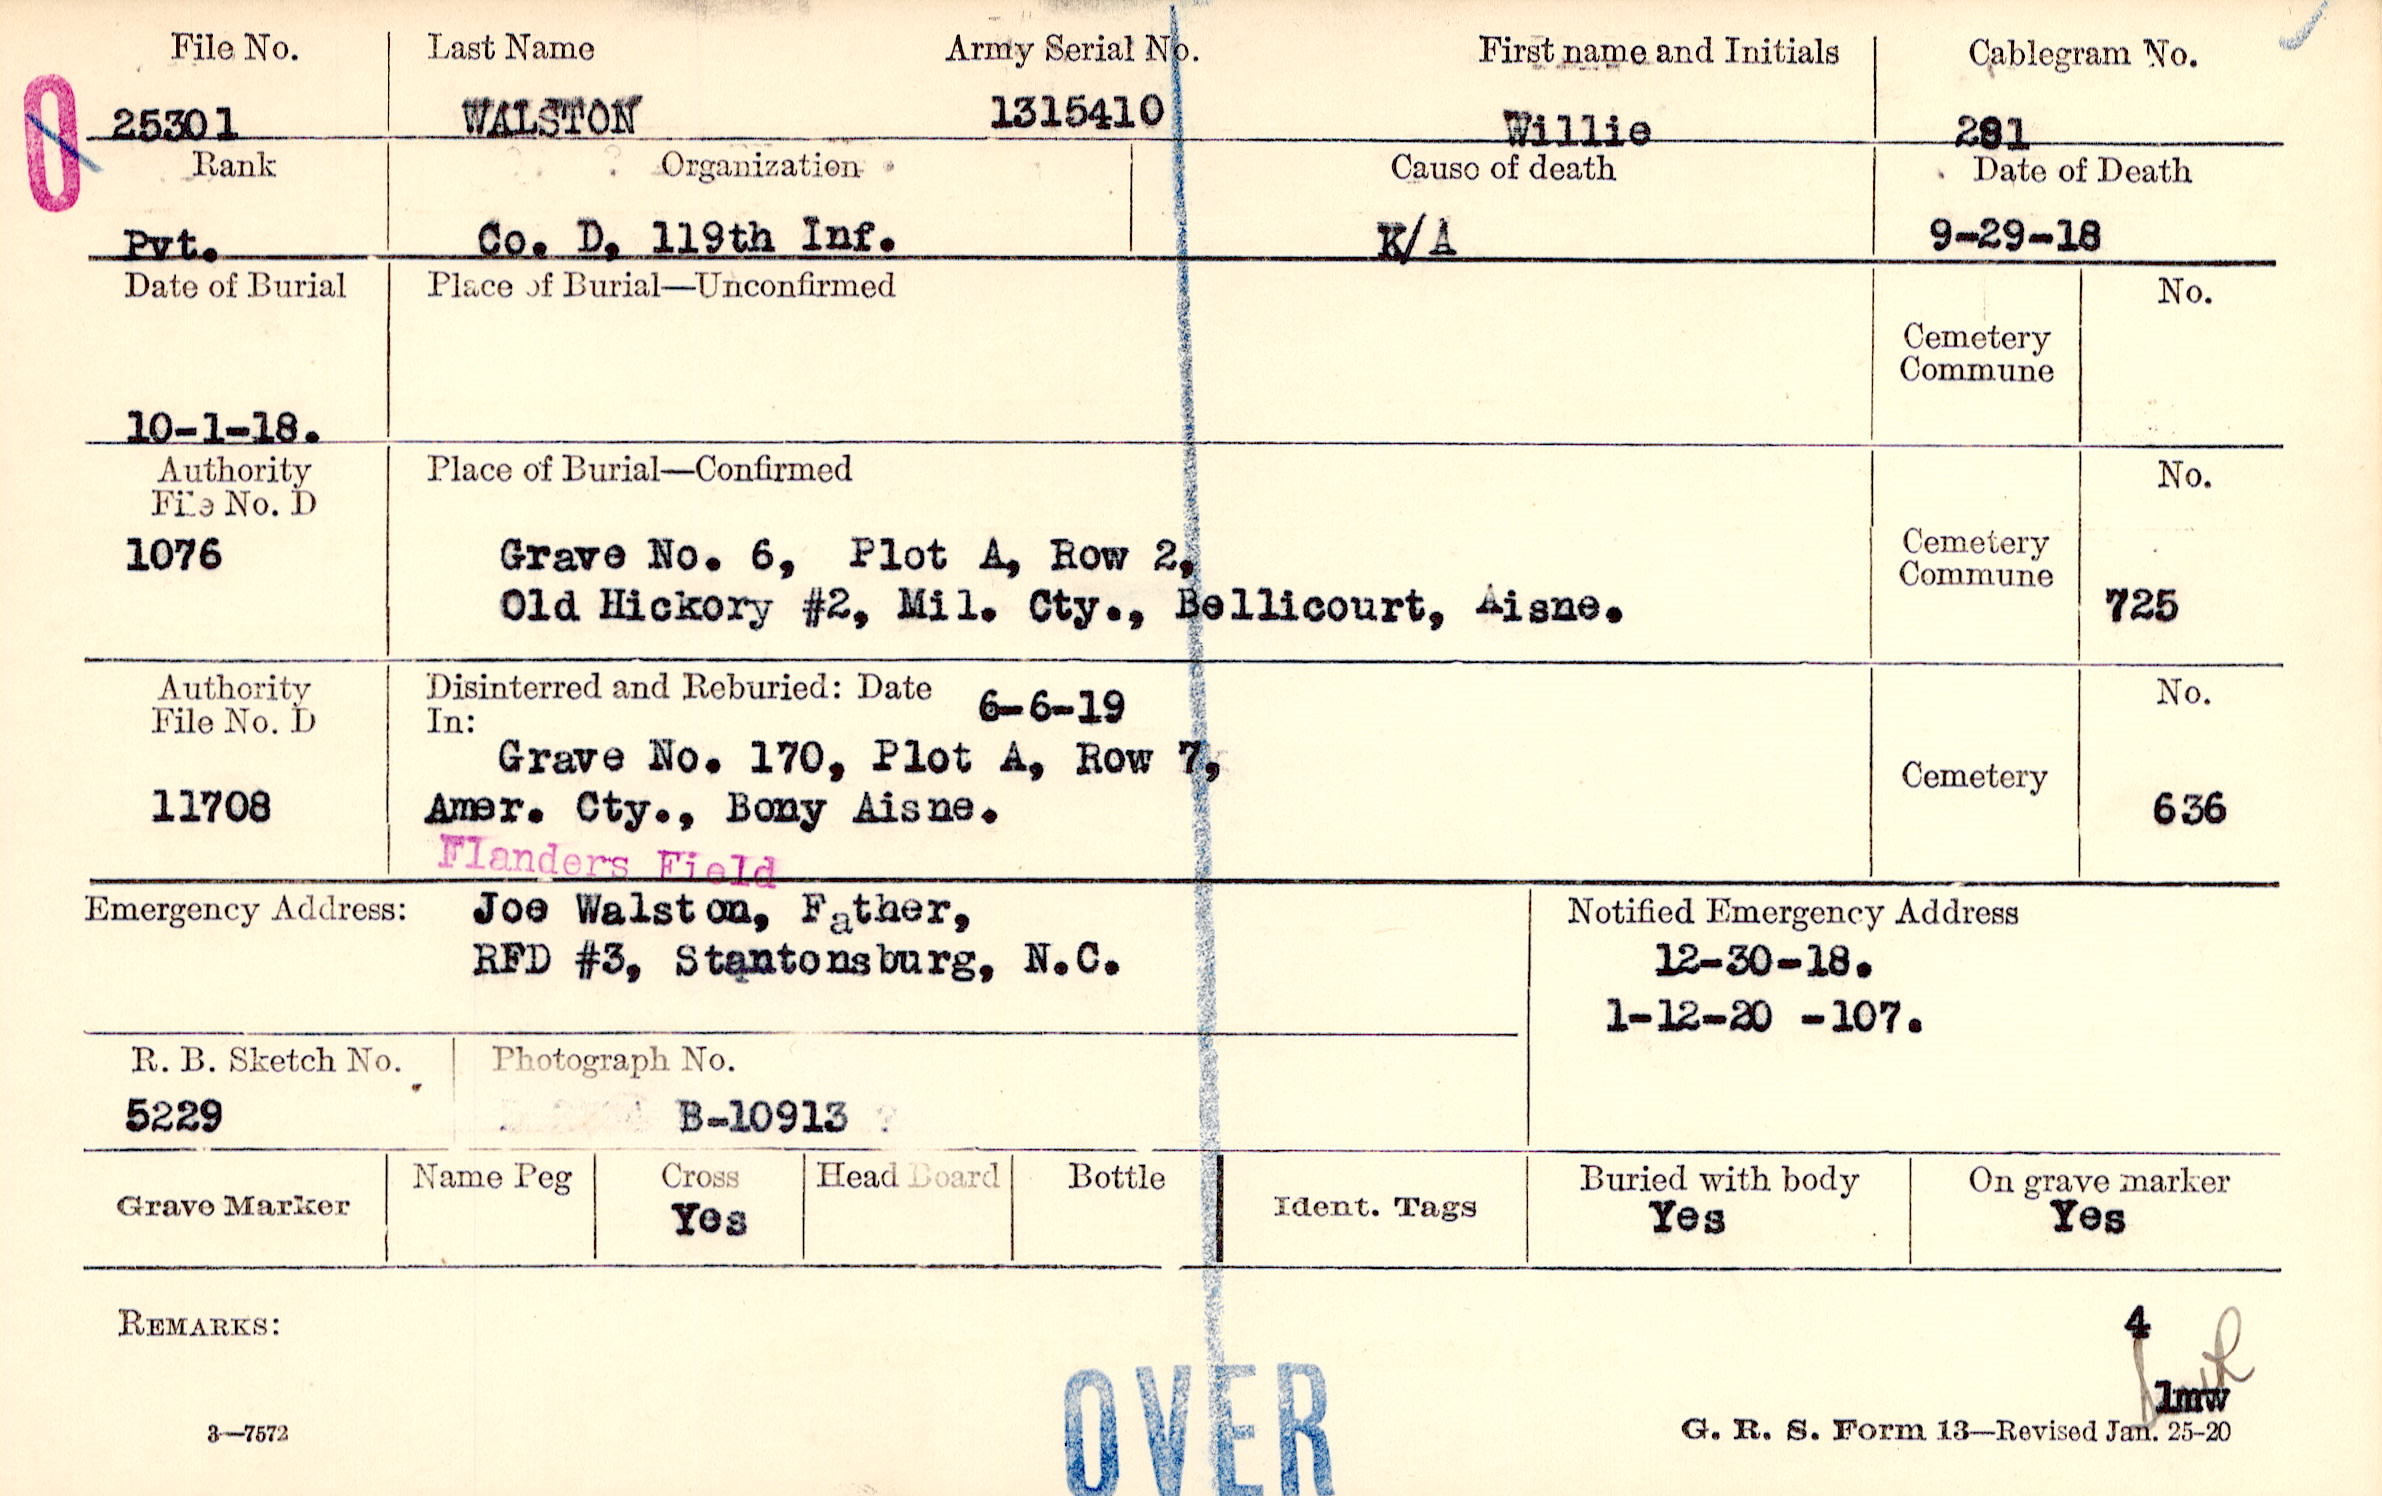 File No. Last Name Army Serial No. First name and Initials Cablegram No.
0 25301 WALSTON 1315410 Willie 281
Rank Organization Cause of death Date of Death
Pvt. Co. D, 119th Inf. K/A 9-29-18
Date of Burial Place of Burial—Unconfirmed No.
Cemetery
Commune
10-1-18.
Authority Place of Burial—Confirmed No.
File No. D
1076 Grave No. 6, Plot A, Row 2, Cemetery
Commune
Old Hickory #2, Mil. Cty., Bellicourt, Aisne. 725
Authority Disinterred and Reburied: Date 6-6-19 No.
File No. D In:
Grave No. 170, Plot A, Row 7, Cemetery
11708 Amer. Cty., Bony Aisne. 636
Flanders Field
Emergency Address: Joe Walston, Father, Notified Emergency Address
RFD #3, Stantonsburg, N.C. 12-30-18.
1-12-20 -107.
R. B. Sketch No. Photograph No.
5229 B-10913
Grave Marker Name Peg Cross Head Board Bottle Ident. Tags Buried with body On grave marker
Yes Yes Yes
REMARKS: 4
lmw
3—7572 OVER G. R. S. Form 13—Revised Jan. 25-20